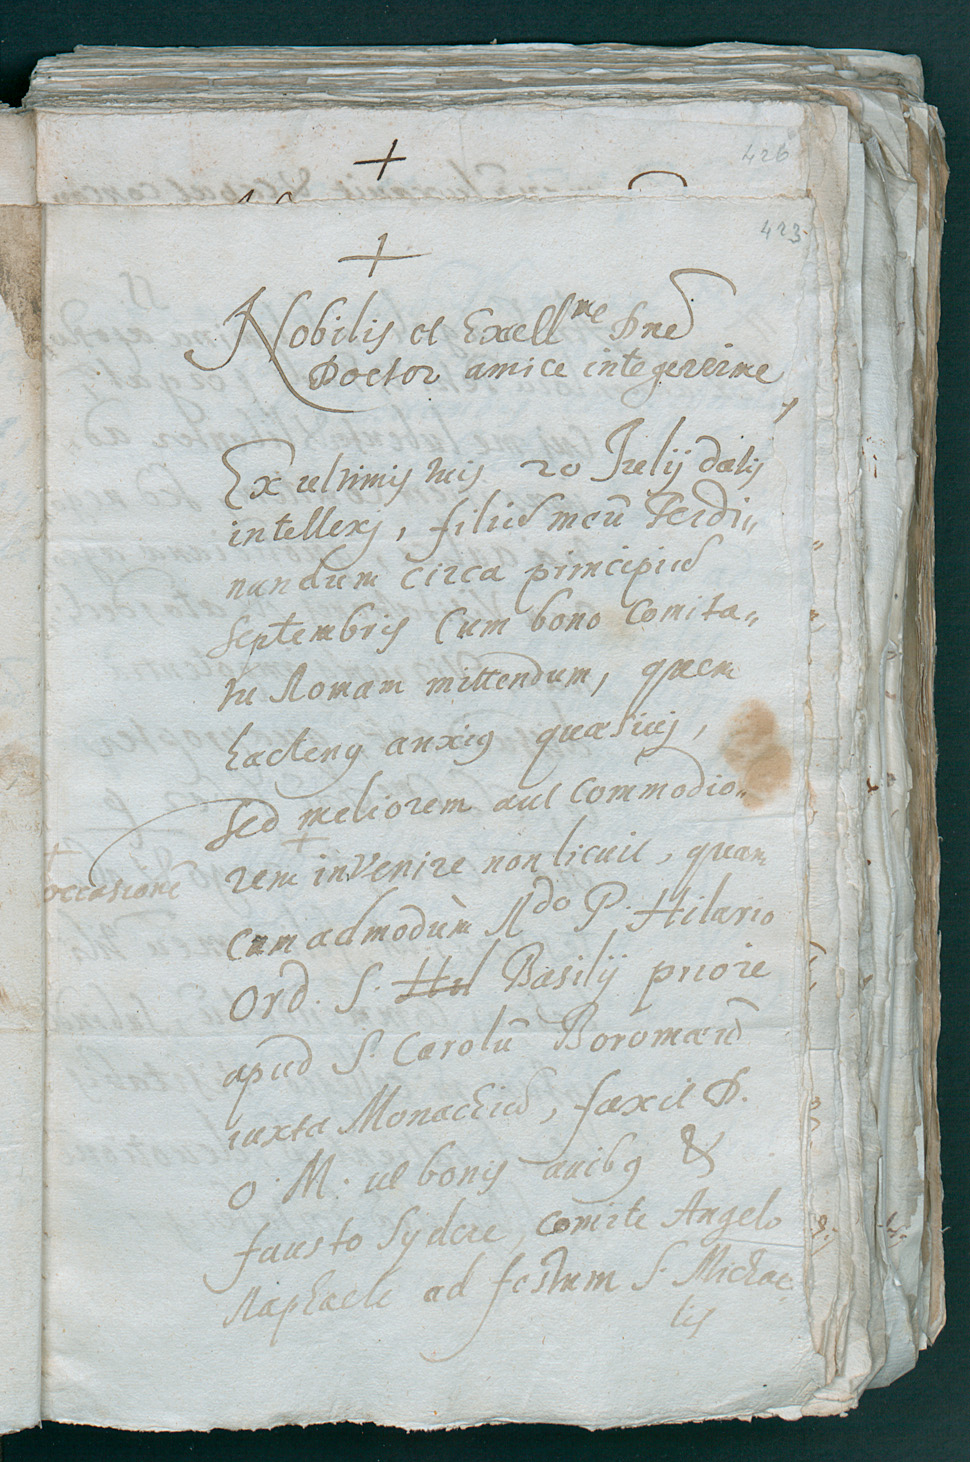 426
423.
Nobilis et Exellme Dne
Doctor amice integerrime
Ex ultimis his 20 Julij datis
intellexj, filiū meū Ferdi„
nandum circa principiū
Septembris Cum bono Comita„
tu Romam mittendum, quem
hactenꝰ anxiꝰ quæsiuj,
sed meliorem aut Commodio„
occasione
rem invenire non licuit, quam
Cum admodùm Rdo P. Hilario
Ord. S. Basilij priore
apud S. Carolū Boromæū
iuxta Monachiū, faxit D.
O. M. ut bonis auibꝰ &
fausto Sydere, Comite Angelo
Raphaele ad festum S. Michae„
lis